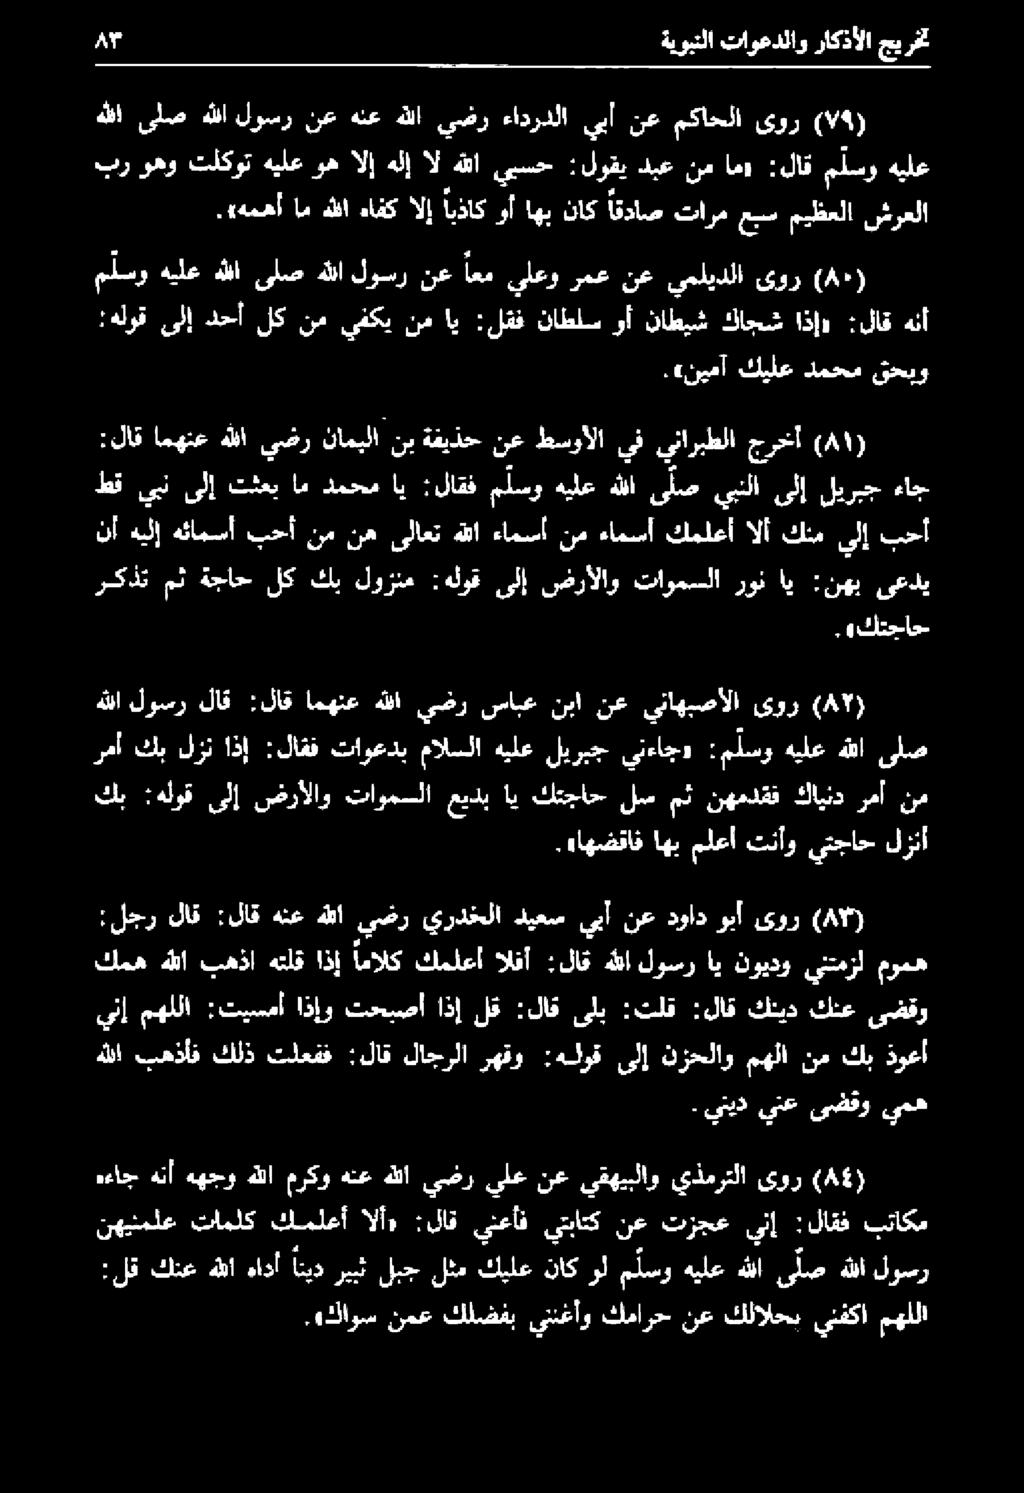 تخريج الأذكار والدعوات النبوية ٨٣
(٧٩) روى الحاكم عن أبي الدرداء رضي الله عنه عن رسول الله صلى الله
عليه وسلّم قال: «ما من عبد يقول: حسبي الله لا إله إلا هو عليه توكلت وهو رب
العرش العظيم سبع مرات صادقاً كان بها أو كاذباً إلا كفاه الله ما أهمه».
(٨٠) روى الديلمي عن عمر وعلي معاً عن رسول الله صلى الله عليه وسلّم
أنه قال: «إذا شجاك شيطان أو سلطان فقل: يا من يكفي من كل أحد إلى قوله:
وبحق محمد عليك آمين».
(٨١) أخرج الطبراني في الأوسط عن حذيفة بن اليمان رضي الله عنهما قال:
جاء جبريل إلى النبي صلّى الله عليه وسلّم فقال: يا محمد ما بعثت إلى نبي قط
أحب إلي منك ألا أعلمك أسماء من أسماء الله تعالى هن من أحب أسمائه إليه أن
يدعى بهن: يا نور السموات والأرض إلى قوله: منزول بك كل حاجة ثم تذكر
حاجتك».
(٨٢) روى الأصبهاني عن ابن عباس رضي الله عنهما قال: قال رسول الله
صلى الله عليه وسلّم: «جاءني جبريل عليه السلام بدعوات فقال: إذا نزل بك أمر
من أمر دنياك فقدمهن ثم سل حاجتك يا بديع السموات والأرض إلى قوله: بك
أنزل حاجتي وأنت أعلم بها فاقضها».
(٨٣) روى أبو داود عن أبي سعيد الخدري رضي الله عنه قال: قال رجل:
هموم لزمتني وديون يا رسول الله قال: أفلا أعلمك كلاماً إذا قلته اذهب الله همك
وقضى عنك دينك قال: قلت: بلى قال: قل إذا أصبحت وإذا أمسيت: اللهم إني
أعوذ بك من الهم والحزن إلى قوله: وقهر الرجال قال: ففعلت ذلك فأذهب الله
همي وقضى عني ديني.
(٨٤) روى الترمذي والبيهقي عن علي رضي الله عنه وكرم الله وجهه أنه جاءه
مكاتب فقال: إني عجزت عن كتابتي فأعني قال: «ألا أعلمك كلمات علمنيهن
رسول الله صلّى الله عليه وسلّم لو كان عليك مثل جبل ثبير ديناً أداه الله عنك قل:
اللهم اكفني بحلالك عن حرامك وأغنني بفضلك عمن سواك».